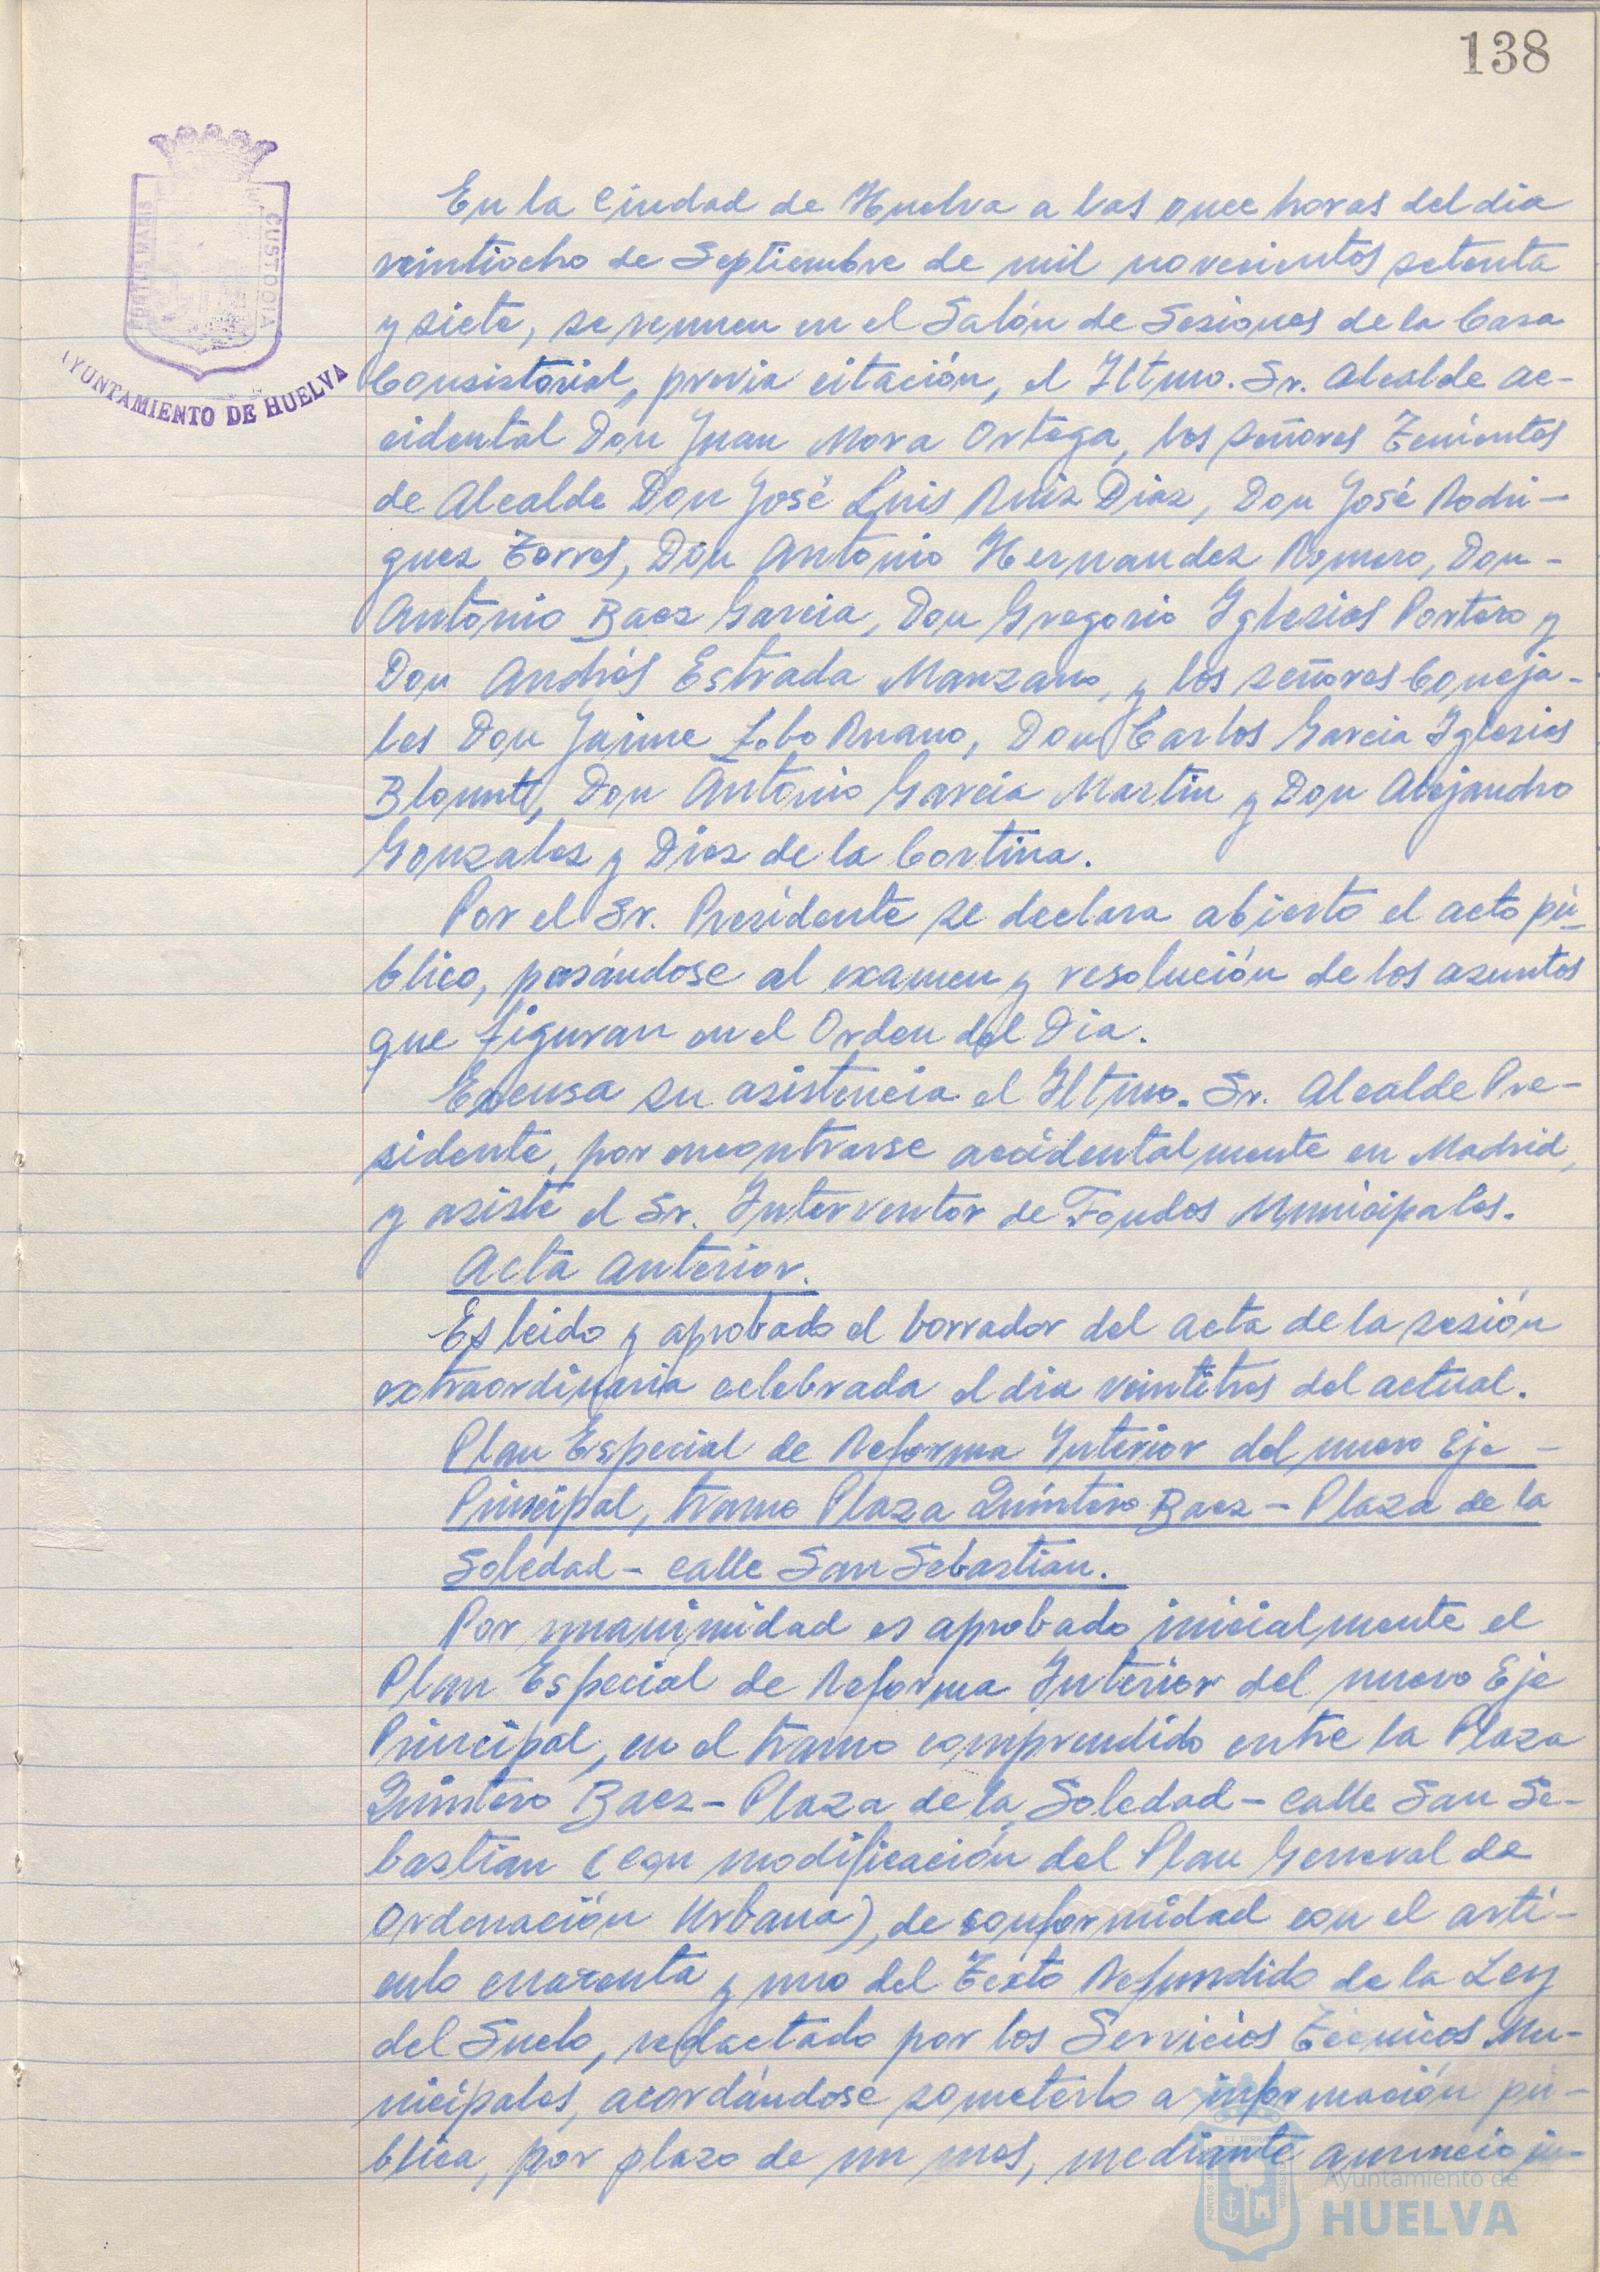 138
PORTUS MARIS
CUSTODIA
AYUNTAMIENTO DE HUELVA
En la Ciudad de Huelva a las once horas del dia
veintiocho de Septiembre de mil novecientos setenta
y siete, se reunen en el Salón de Sesiones de la Casa
Consistorial, previa citación, el Iltmo. Sr. Alcalde ac-
cidental Don Juan Mora Ortega, los señores Tenientes
de Alcalde Don José Luis Ruiz Diaz, Don José Rodri-
guez Torres, Don Antonio Hernandez Romero, Don-
Antonio Baez Garcia, Don Gregorio Iglesias Portero y
Don Andrés Estrada Manzano, y los señores Conceja-
les Don Jaime Lobo Ruano, Don Carlos Garcia Iglesias
Don Antonio Garcia Martin y Don Alejandro
Gonzalez y Diez de la Cortina.
Por el Sr. Presidente se declara abierto el acto pú-
blico, pasándose al examen y resolución de los asuntos
que figuran en el Orden del Dia.
Excusa su asistencia el Iltmo. Sr. Alcalde Pre-
sidente, por encontrarse accidentalmente en Madrid,
y asiste el Sr. Interventor de Fondos Municipales.
Acta anterior.
Es leido y aprobado el borrador del acta de la sesión
extraordinaria celebrada el dia veintitres del actual.
Plan Especial de Reforma Interior del nuevo Eje -
Principal, tramo Plaza Quintero Baez - Plaza de la
Soledad - calle San Sebastian.
Por unanimidad es aprobado inicialmente el
Plan Especial de Reforma Interior del nuevo Eje
Principal, en el tramo comprendido entre la Plaza
Quintero Baez - Plaza de la Soledad - calle San Se-
bastian (con modificación del Plan General de
Ordenación Urbana), de conformidad con el arti-
culo cuarenta y uno del Texto Refundido de la Ley
del Suelo, redactado por los Servicios Técnicos Mu-
nicipales, acordándose someterlo a información pú-
blica, por plazo de un mes, mediante anuncio in-
Ayuntamiento de
HUELVA